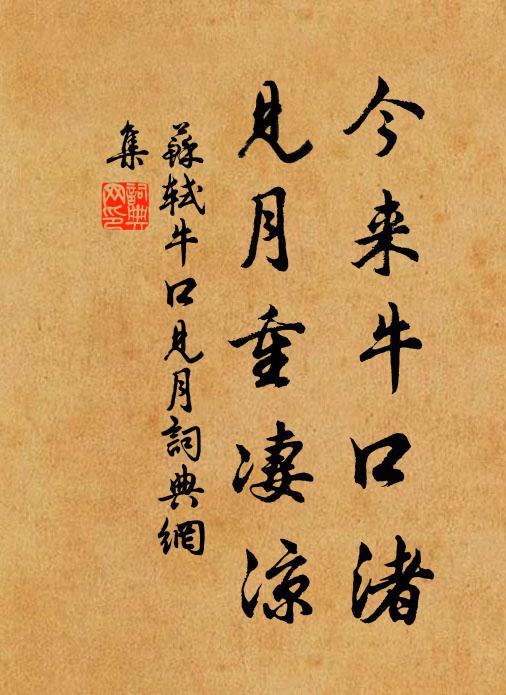 今来牛口渚
見月重凄涼
蘇軾牛口見月詞典網
集
詞典
网印